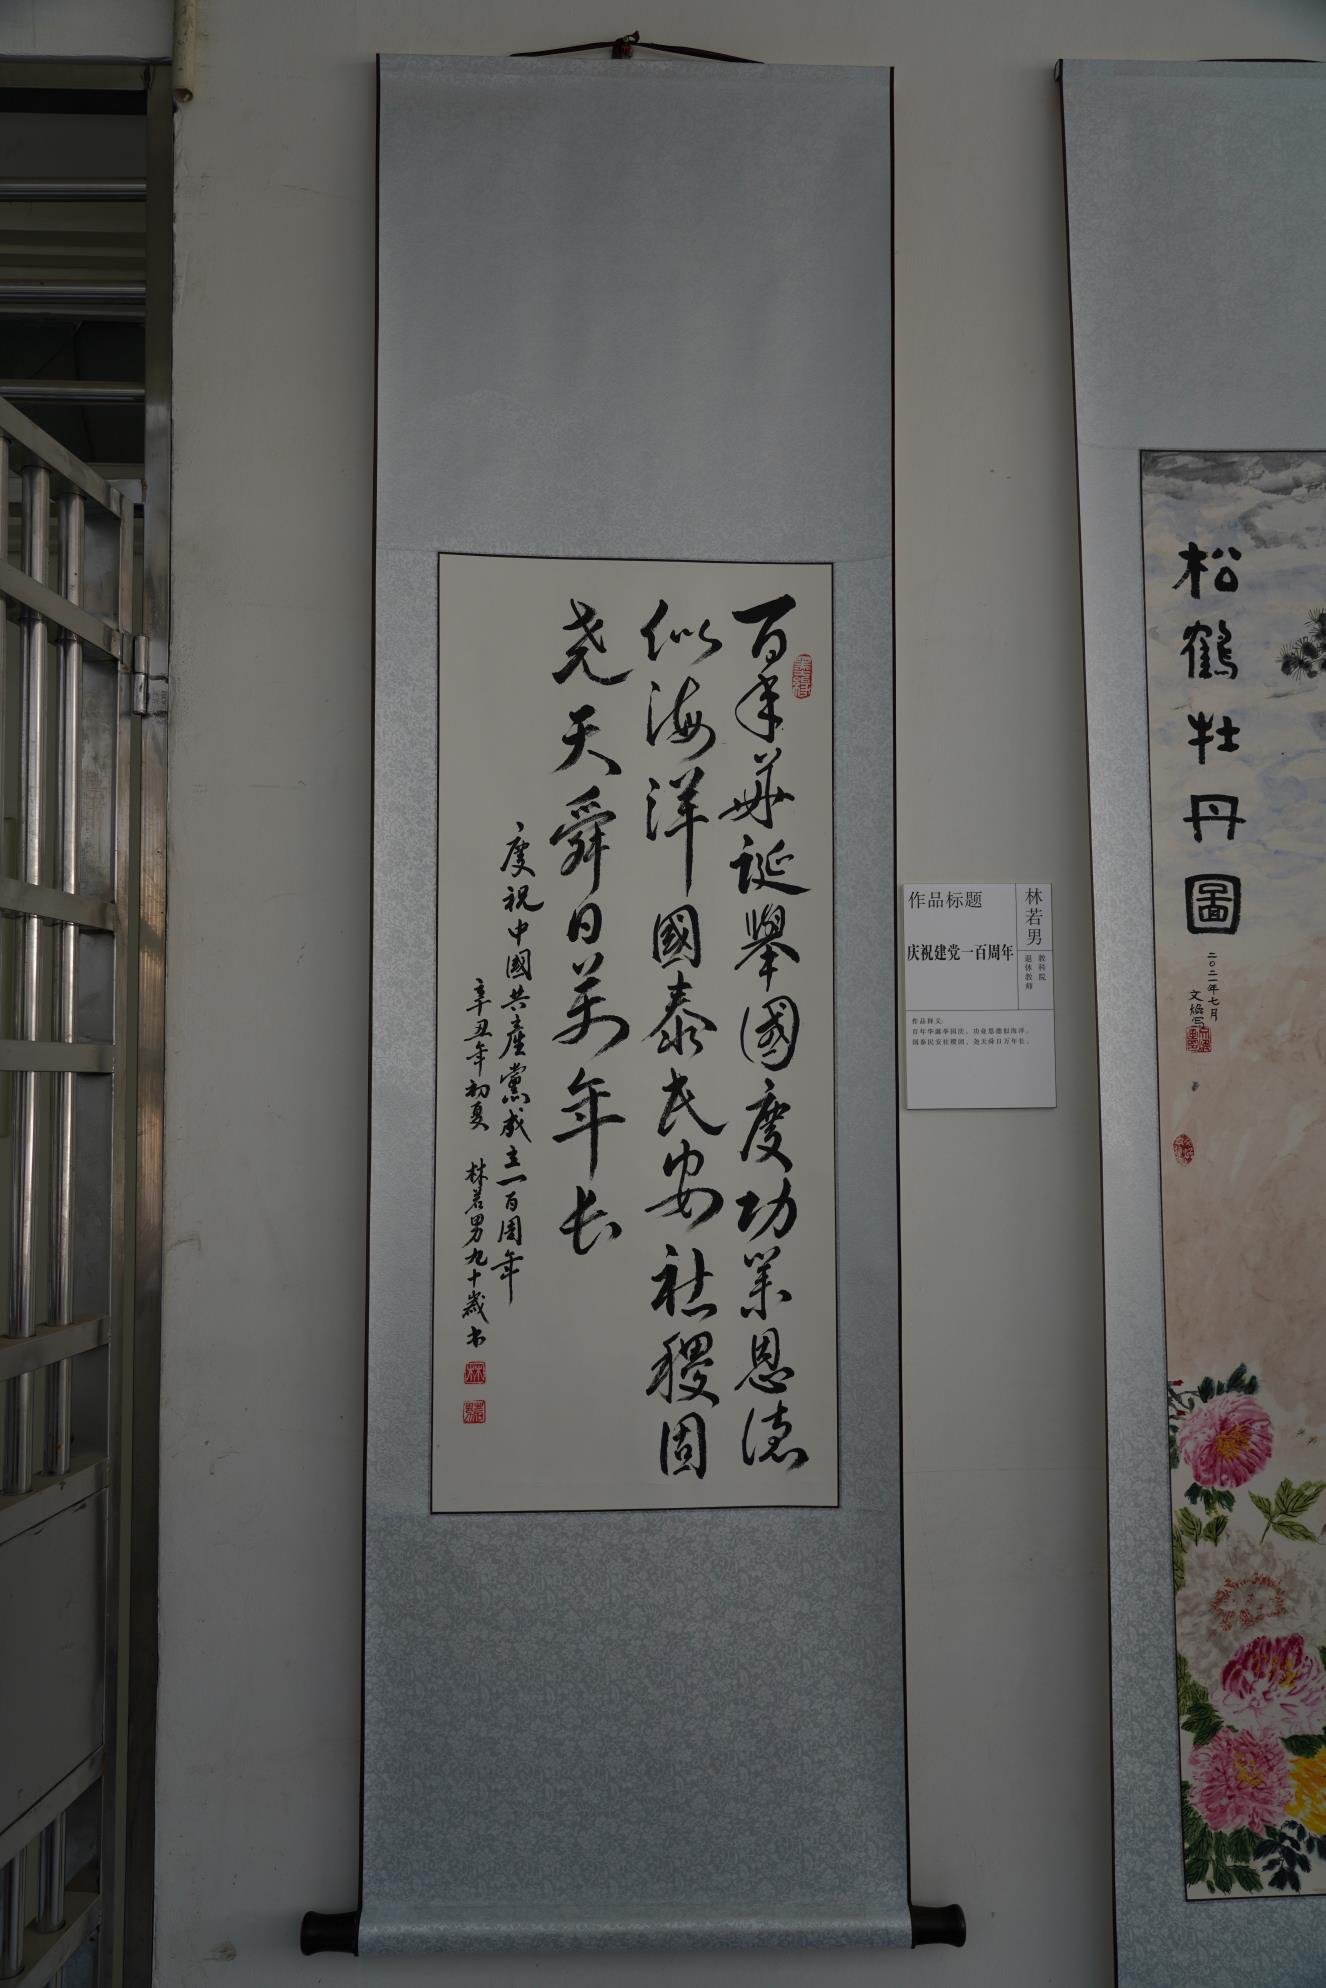 百年華誕舉國慶功業恩德
似海洋國泰民安社稷固
尧天舜日萬年长
慶祝中國共產黨成立一百周年
辛丑年初夏 林若男九十歲书
作品标题
庆祝建党一百周年
林若男
教科院
退休教师
作品释文:
百年华诞举国庆，功业恩德似海洋。
国泰民安社稷固，尧天舜日万年长。
松鶴牡丹圖
二〇二一年七月
文焕写